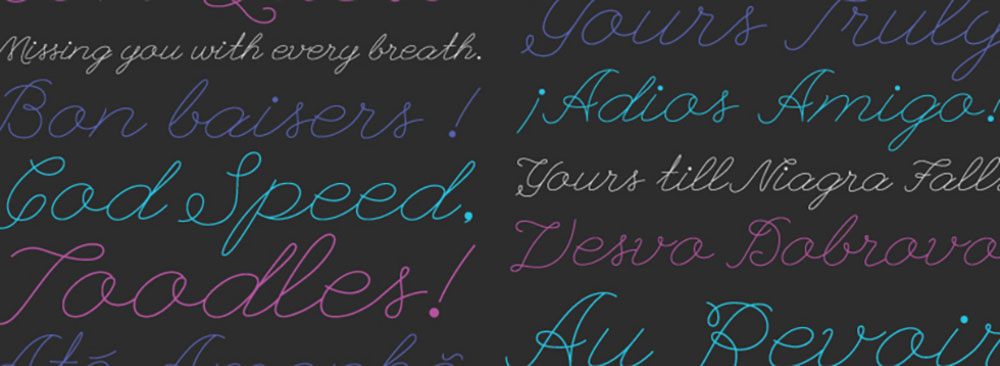 Missing you with every breath.
Bon baisers !
God Speed,
Toodles!
Até Amanhã
Yours Truly
¡Adios Amigo!
Yours till Niagra Falls
Vesvo Dobrovo
Au Revoir